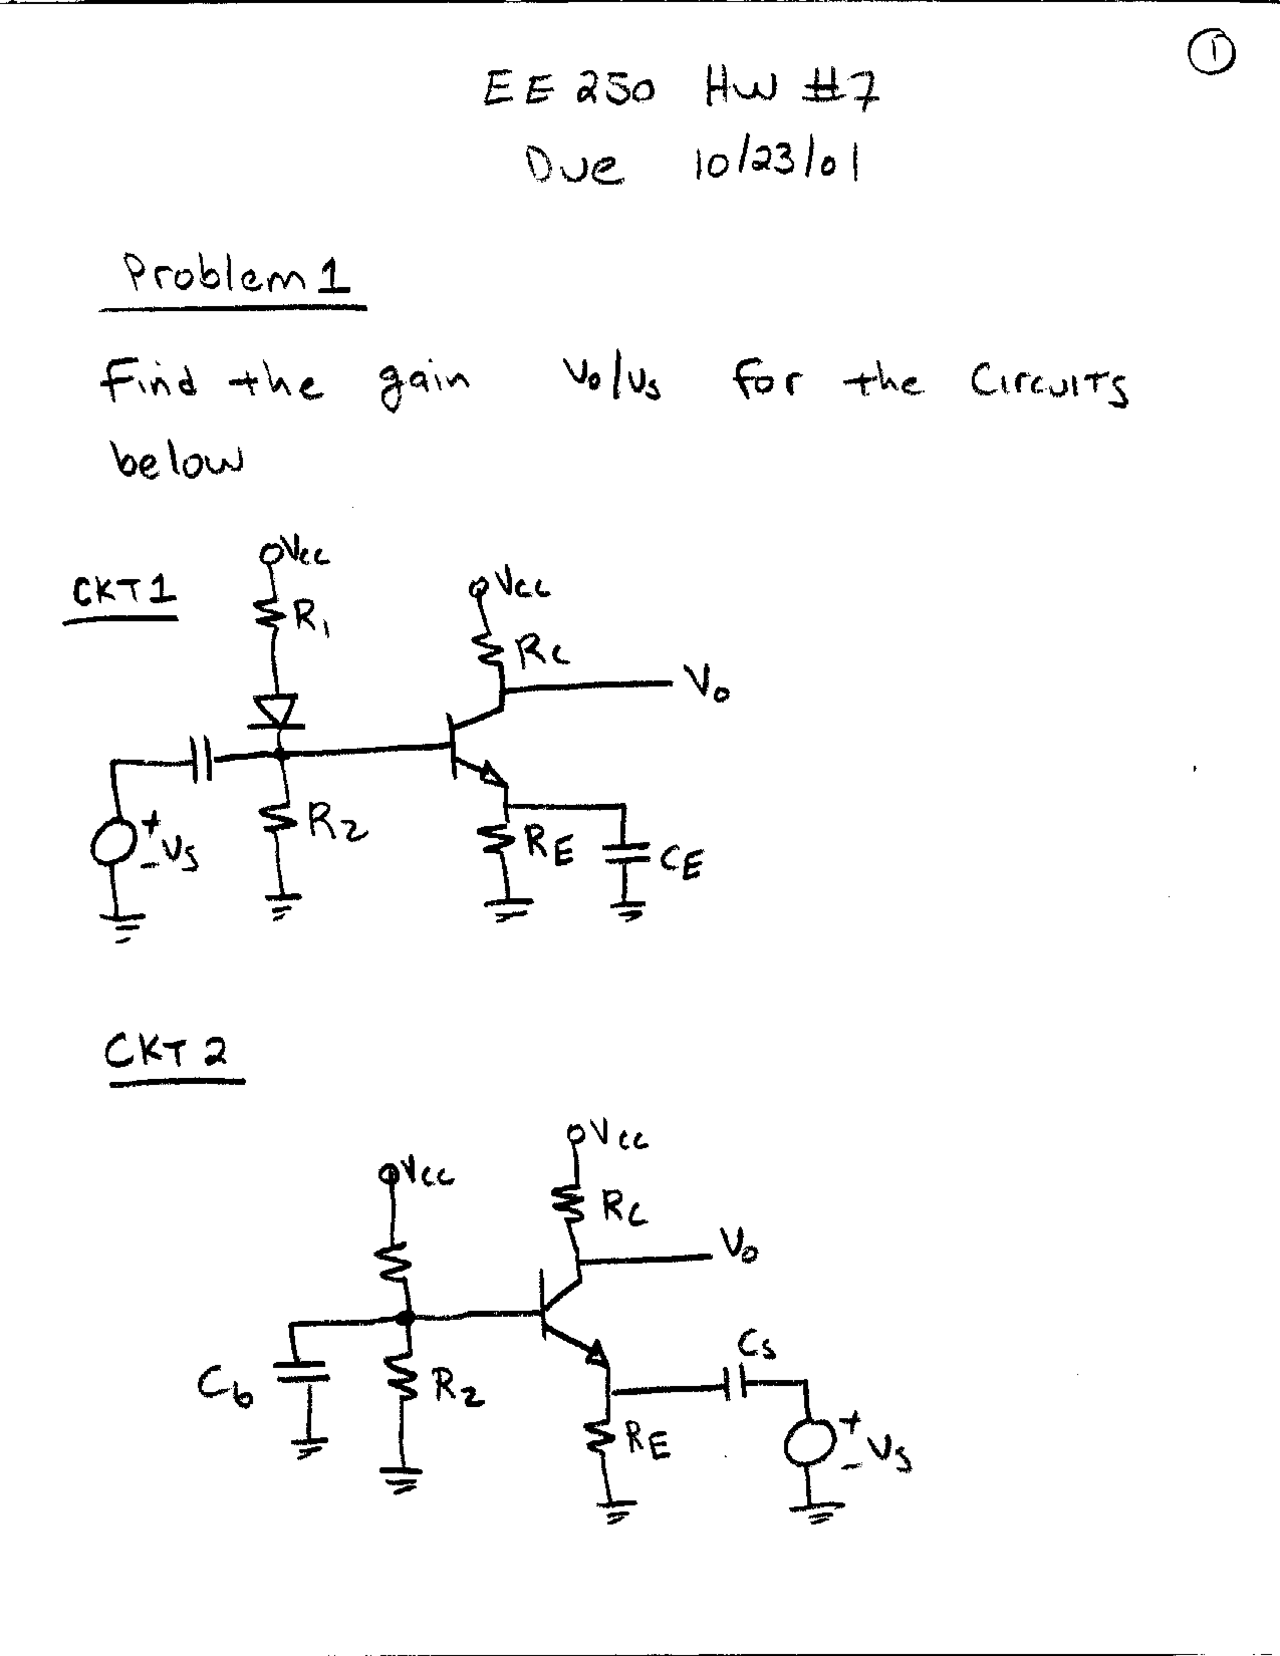 1
EE 250 HW #7
Due 10/23/01
Problem 1
Find the gain Vo/Vs for the Circuits
below
CKT 1
Vcc
R1
Vcc
RC
Vo
+
-
Vs
R2
RE
CE
CKT 2
Vcc
Vcc
RC
Vo
Cb
R2
Cs
RE
+
-
Vs